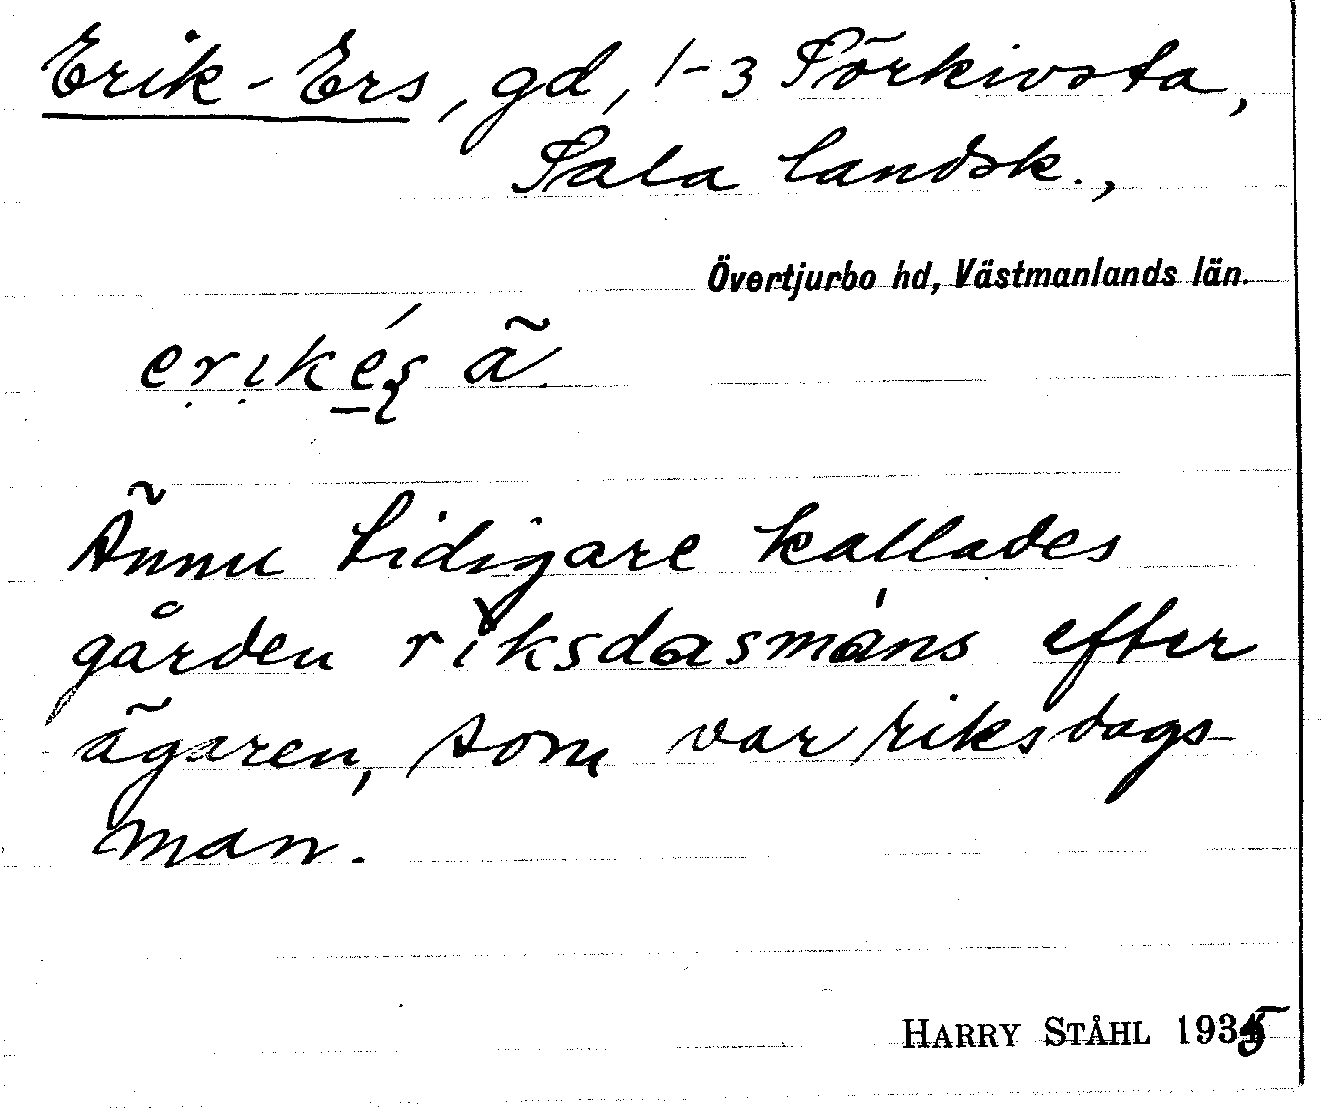 Erik-Ers, gd, 1-3 Sörkivsta,
Sala landsk.,
Övertjurbo hd, Västmanlands län.
erikés ä.
Ännu tidigare kallades
gården riksdasmáns efter
ägaren, som var riksdags-
man.
HARRY STÅHL 1935